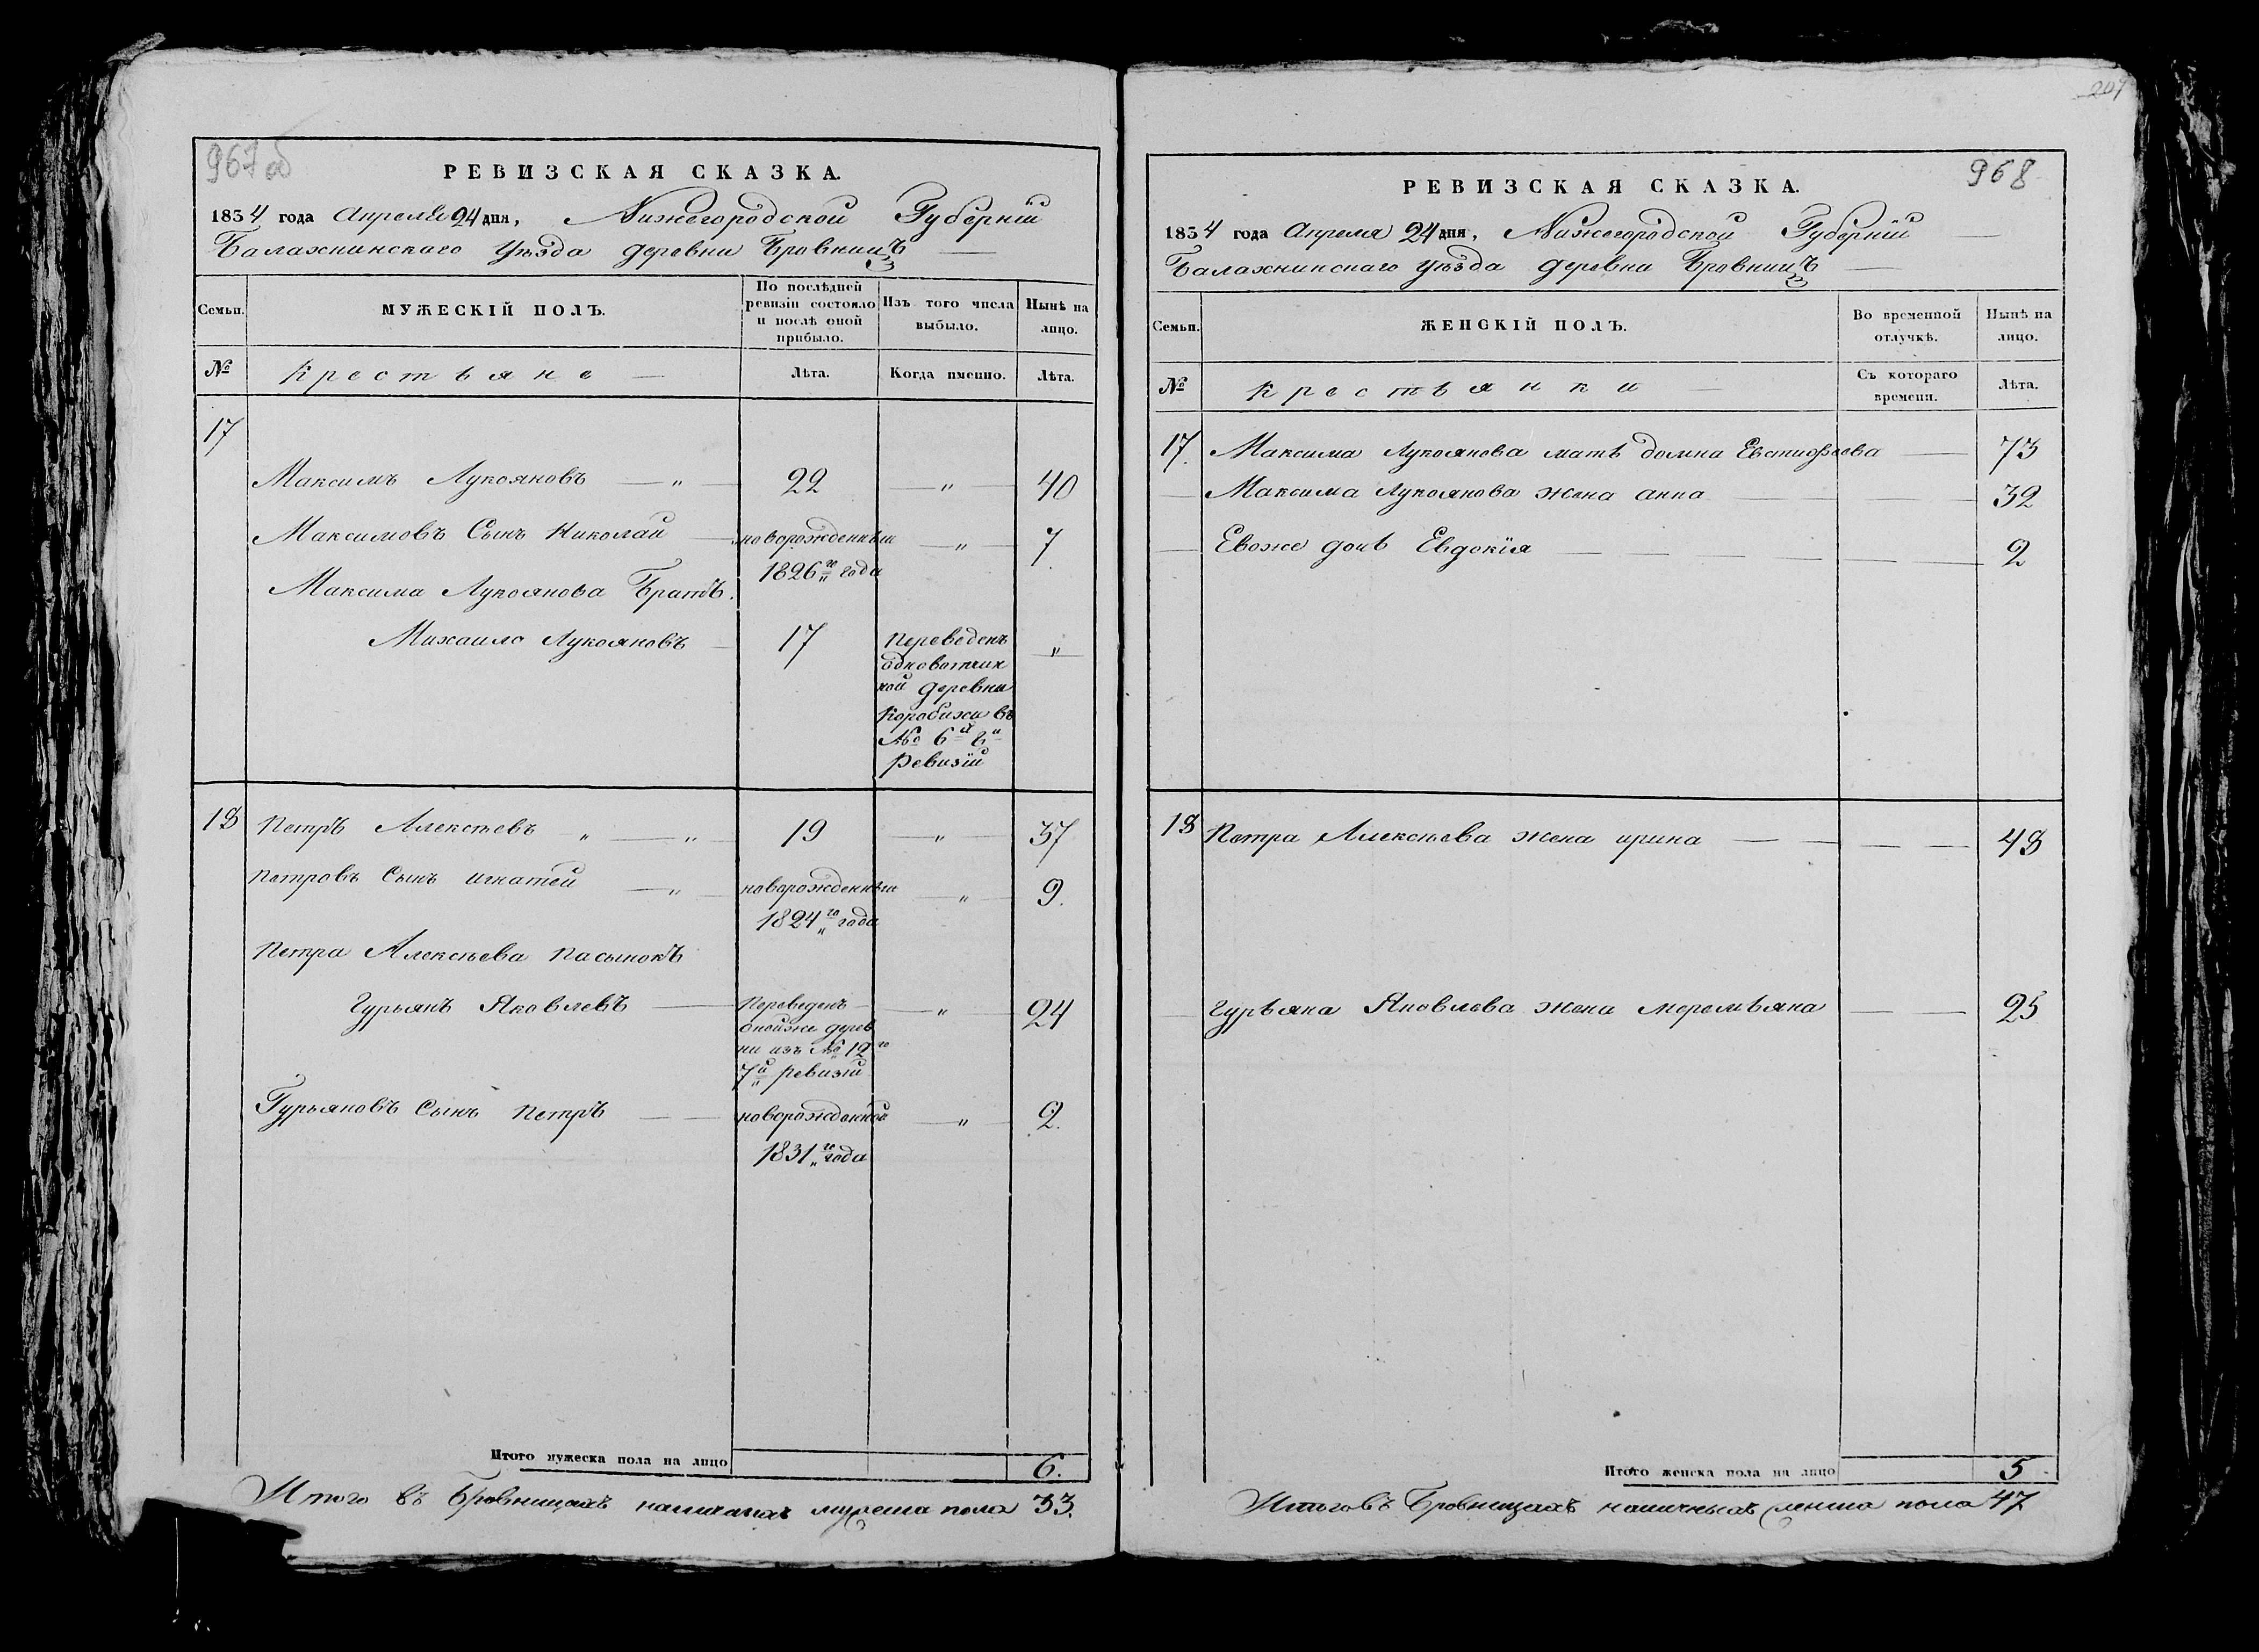 967 об
РЕВИЗСКАЯ СКАЗКА.
1834 года Апреля 24 дня, Нижегородской Губерніи
Балахнинскаго Уѣзда деревни Бровницъ
Семьи.
МУЖЕСКІЙ ПОЛЪ.
По послѣдней ревизіи состояло и послѣ оной прибыло.
Изъ того числа выбыло.
Нынѣ на лицо.
№
Крестьяне
Лѣта.
Когда именно.
Лѣта.
17
Максимъ Лукояновъ — „ 22 „ 40
Максимовъ Сынъ Николай новорожденный „ 7
1826го года
Максима Лукоянова Братъ.
Михаило Лукояновъ 17 Переведенъ „
одновотчин
ной деревни
Коробихи въ
№ 6й 8й
Ревизіи
18 Петръ Алексѣевъ „ „ 19 „ 37
Петровъ Сынъ игнатей „ новорожденный „ 9.
1824го года
Петра Алексѣева пасынокъ
Гурьянъ Яковлевъ Переведенъ „ 24
онойже дерев
ни изъ № 12го
7й ревизіи
Гурьяновъ Сынъ Петръ новорожденной „ 2.
1831го года
Итого мужеска пола на лицо 6.
Итого въ Бровницахъ наличныхъ мужеска пола 33.
207
968
РЕВИЗСКАЯ СКАЗКА.
1834 года Апреля 24 дня, Нижегородской Губерніи
Балахнинскаго Уѣзда деревни Бровницъ
Семьи.
ЖЕНСКІЙ ПОЛЪ.
Во временной отлучкѣ.
Нынѣ на лицо.
№
Крестьянки
Съ котораго времени.
Лѣта.
17. Максима Лукоянова мать домна Евстифеева 73
Максима Лукоянова жена анна 32
Евоже дочь Евдокія 2
18 Петра Алексѣева жена ирина 48
Гурьяна Яковлева жена меремьяна 25
Итого женска пола на лицо 5
Итого въ Бровницахъ наличныхъ женска пола 47